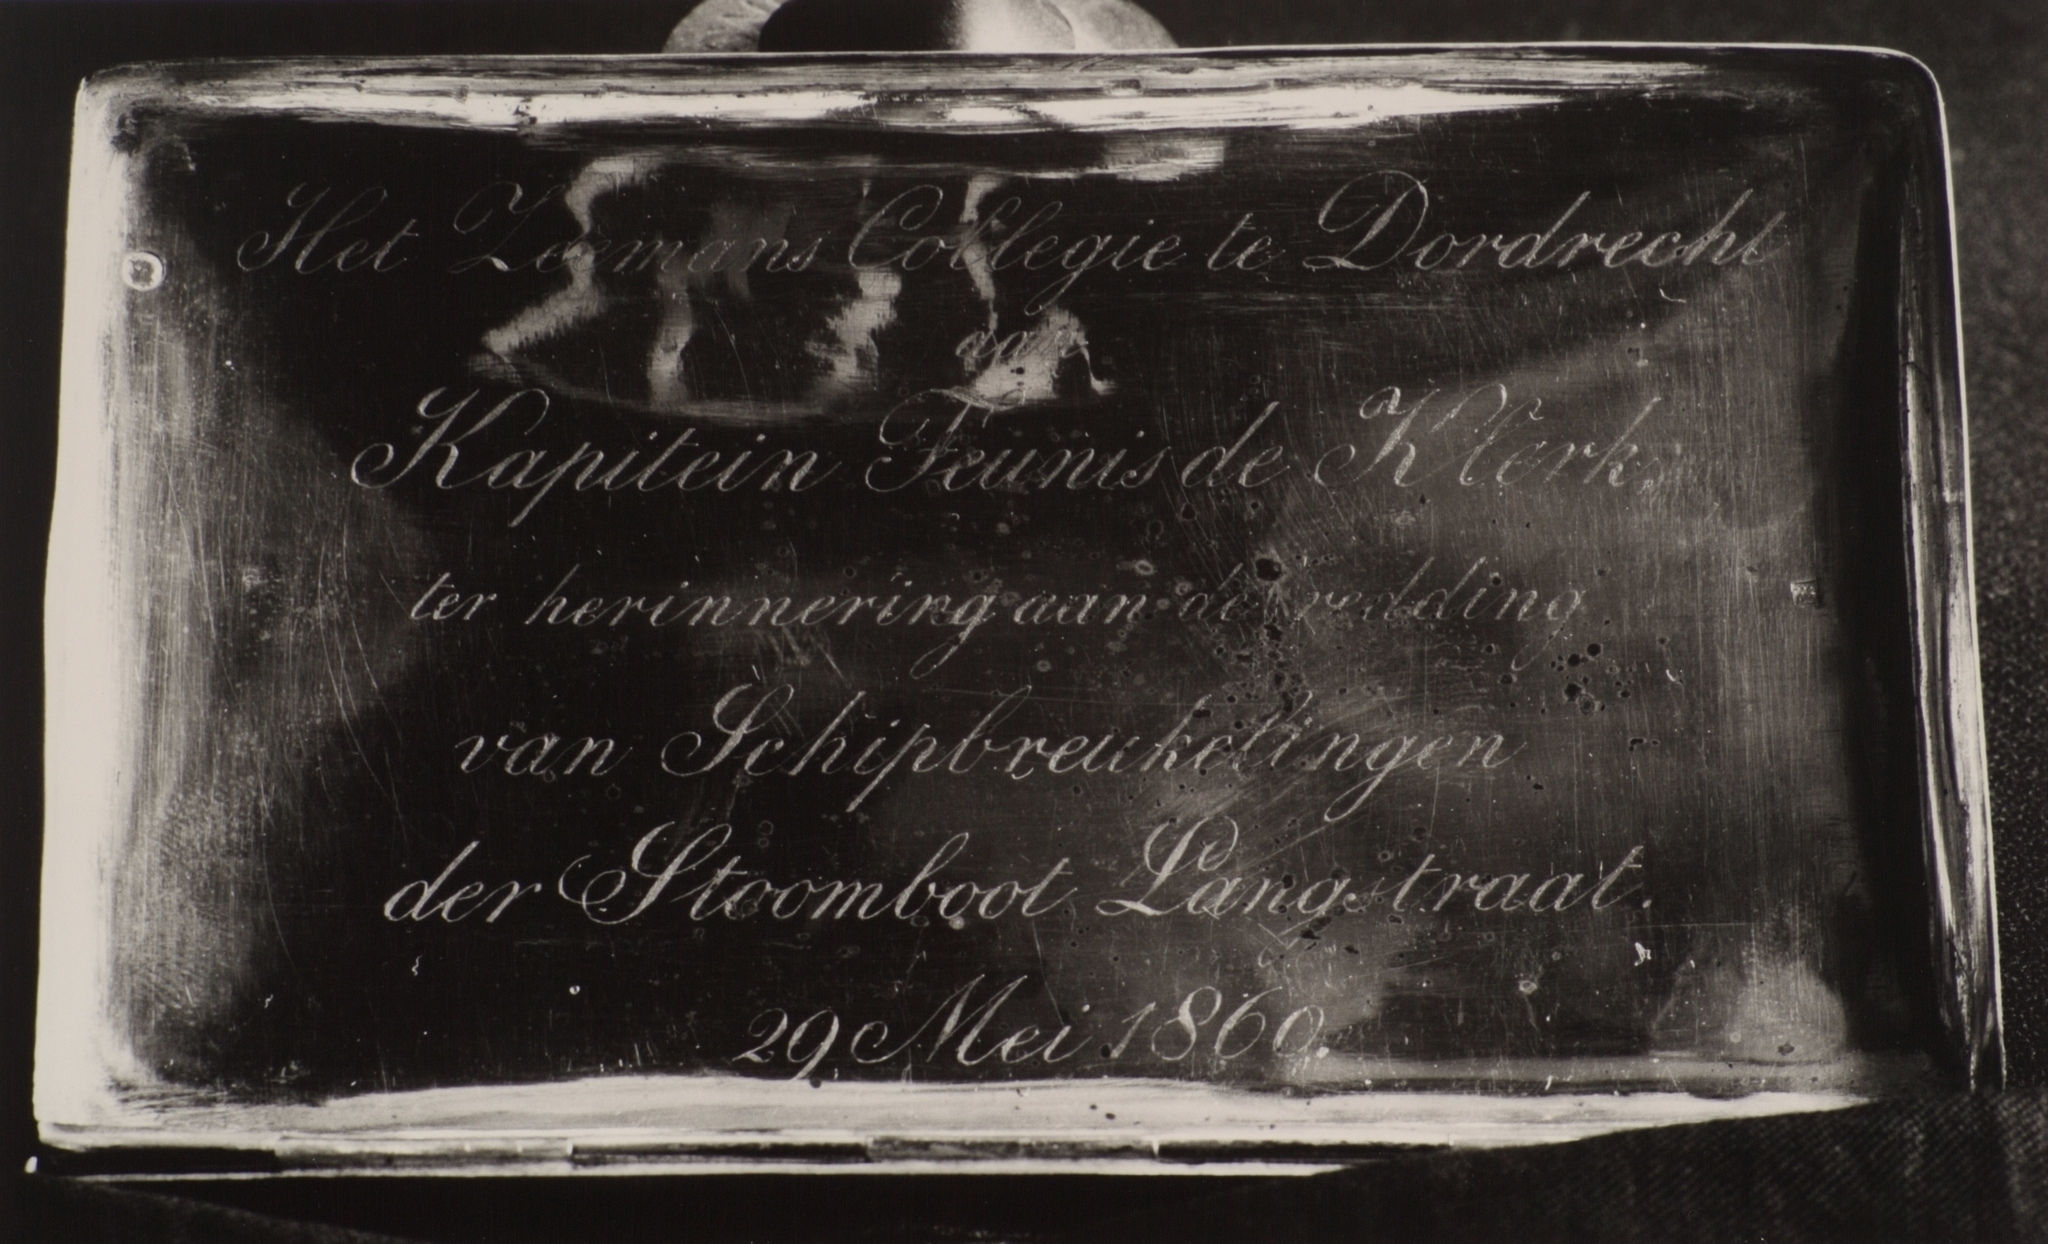 Het Zeemans Collegie te Dordrecht
aan
Kapitein Teunis de Klerk,
ter herinnering aan de redding
van Schipbreukelingen
der Stoomboot Langstraat.
29 Mei 1860.